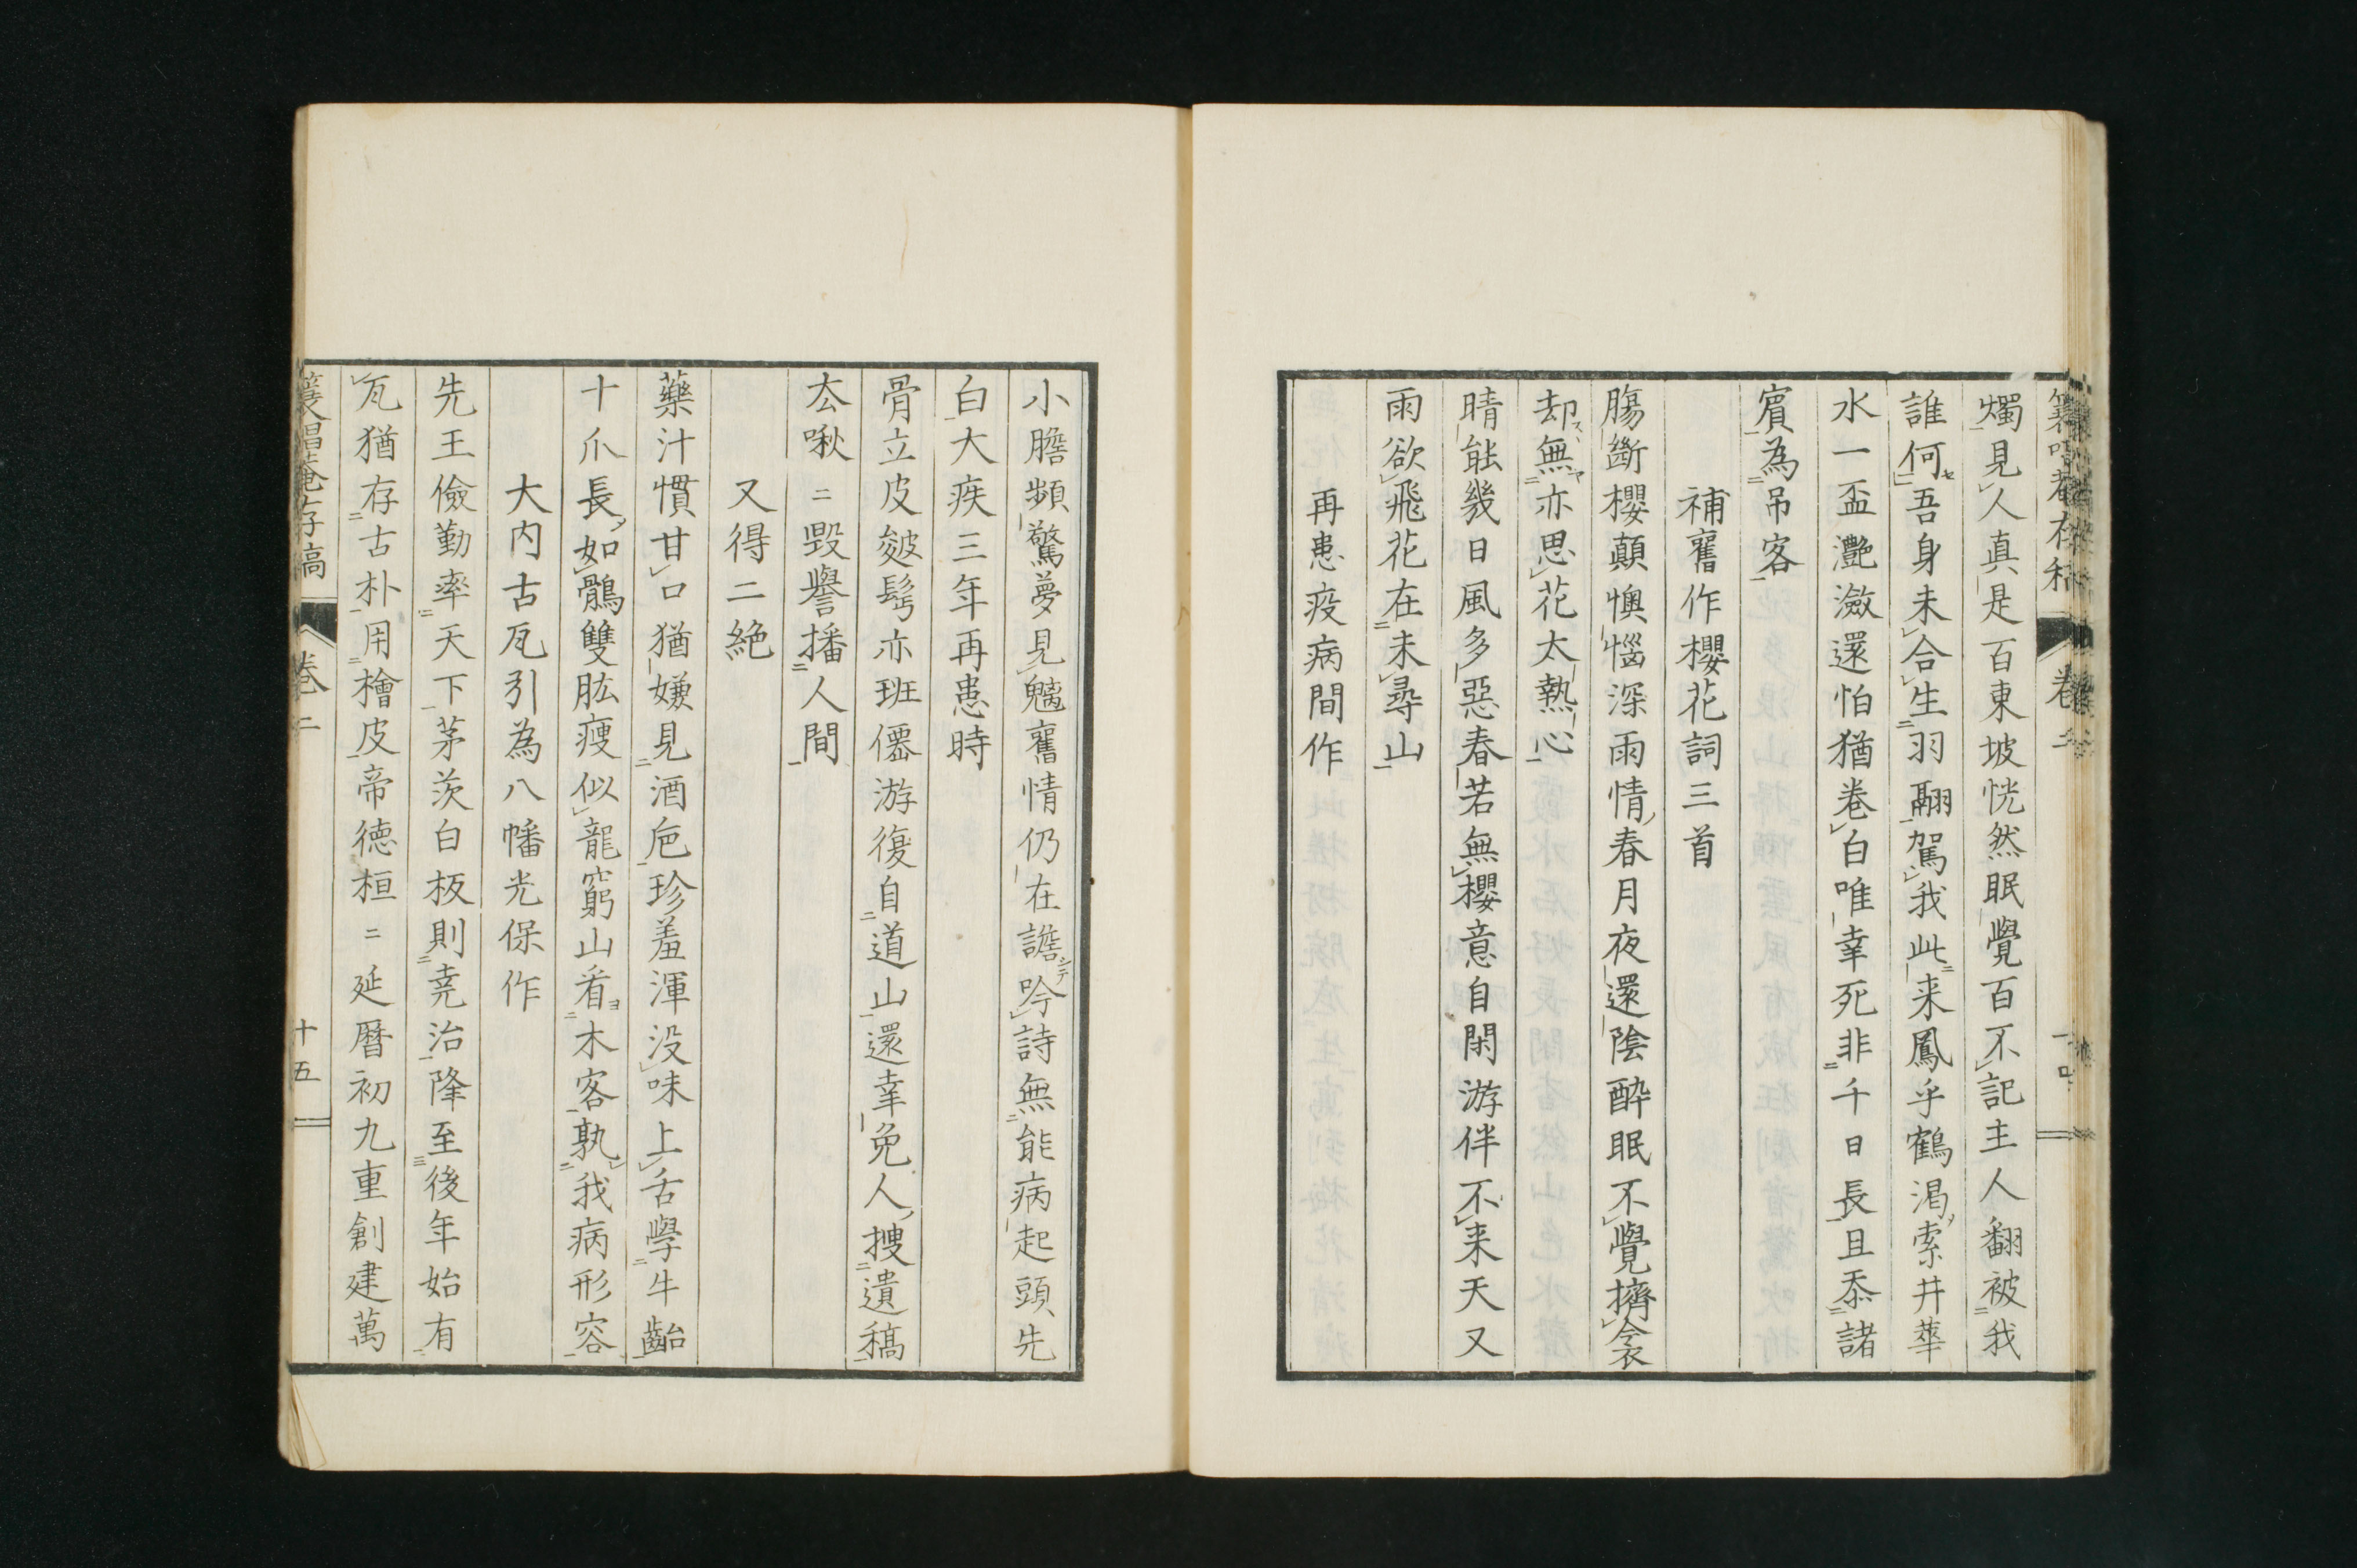 燭見人真是百東坡恍然眠覺百不記主人翻被我
誰何吾身未合生羽翮駕我此来鳳乎鶴渇索井華
水一盃灔瀲還怕猶卷白唯幸死非千日長且忝諸
賓為吊客
補舊作櫻花詞三首
腸斷櫻顛懊惱深雨情春月夜還陰酔眠不覺擠衾
却無亦思花太熱心
晴能幾日風多惡春若無櫻意自閑游伴不来天又
雨欲飛花在未尋山
再患疫病間作
小膽頻驚夢見魑舊情仍在譫吟詩無能病起頭先
白大疾三年再患時
骨立皮皴髩亦班僊游復自道山還幸免人搜遺稿
厺啾〻毀譽播人間
又得二絶
藥汁慣甘口猶嫌見酒巵珍羞渾没味上舌學牛齝
十爪長如鶻雙肱瘦似龍窮山看木客孰我病形容
大内古瓦引為八幡光保作
先王儉勤率天下茅茨白板則尭治降至後年始有
瓦猶存古朴用檜皮帝徳桓〻延暦初九重創建萬
存稿 卷二 十五